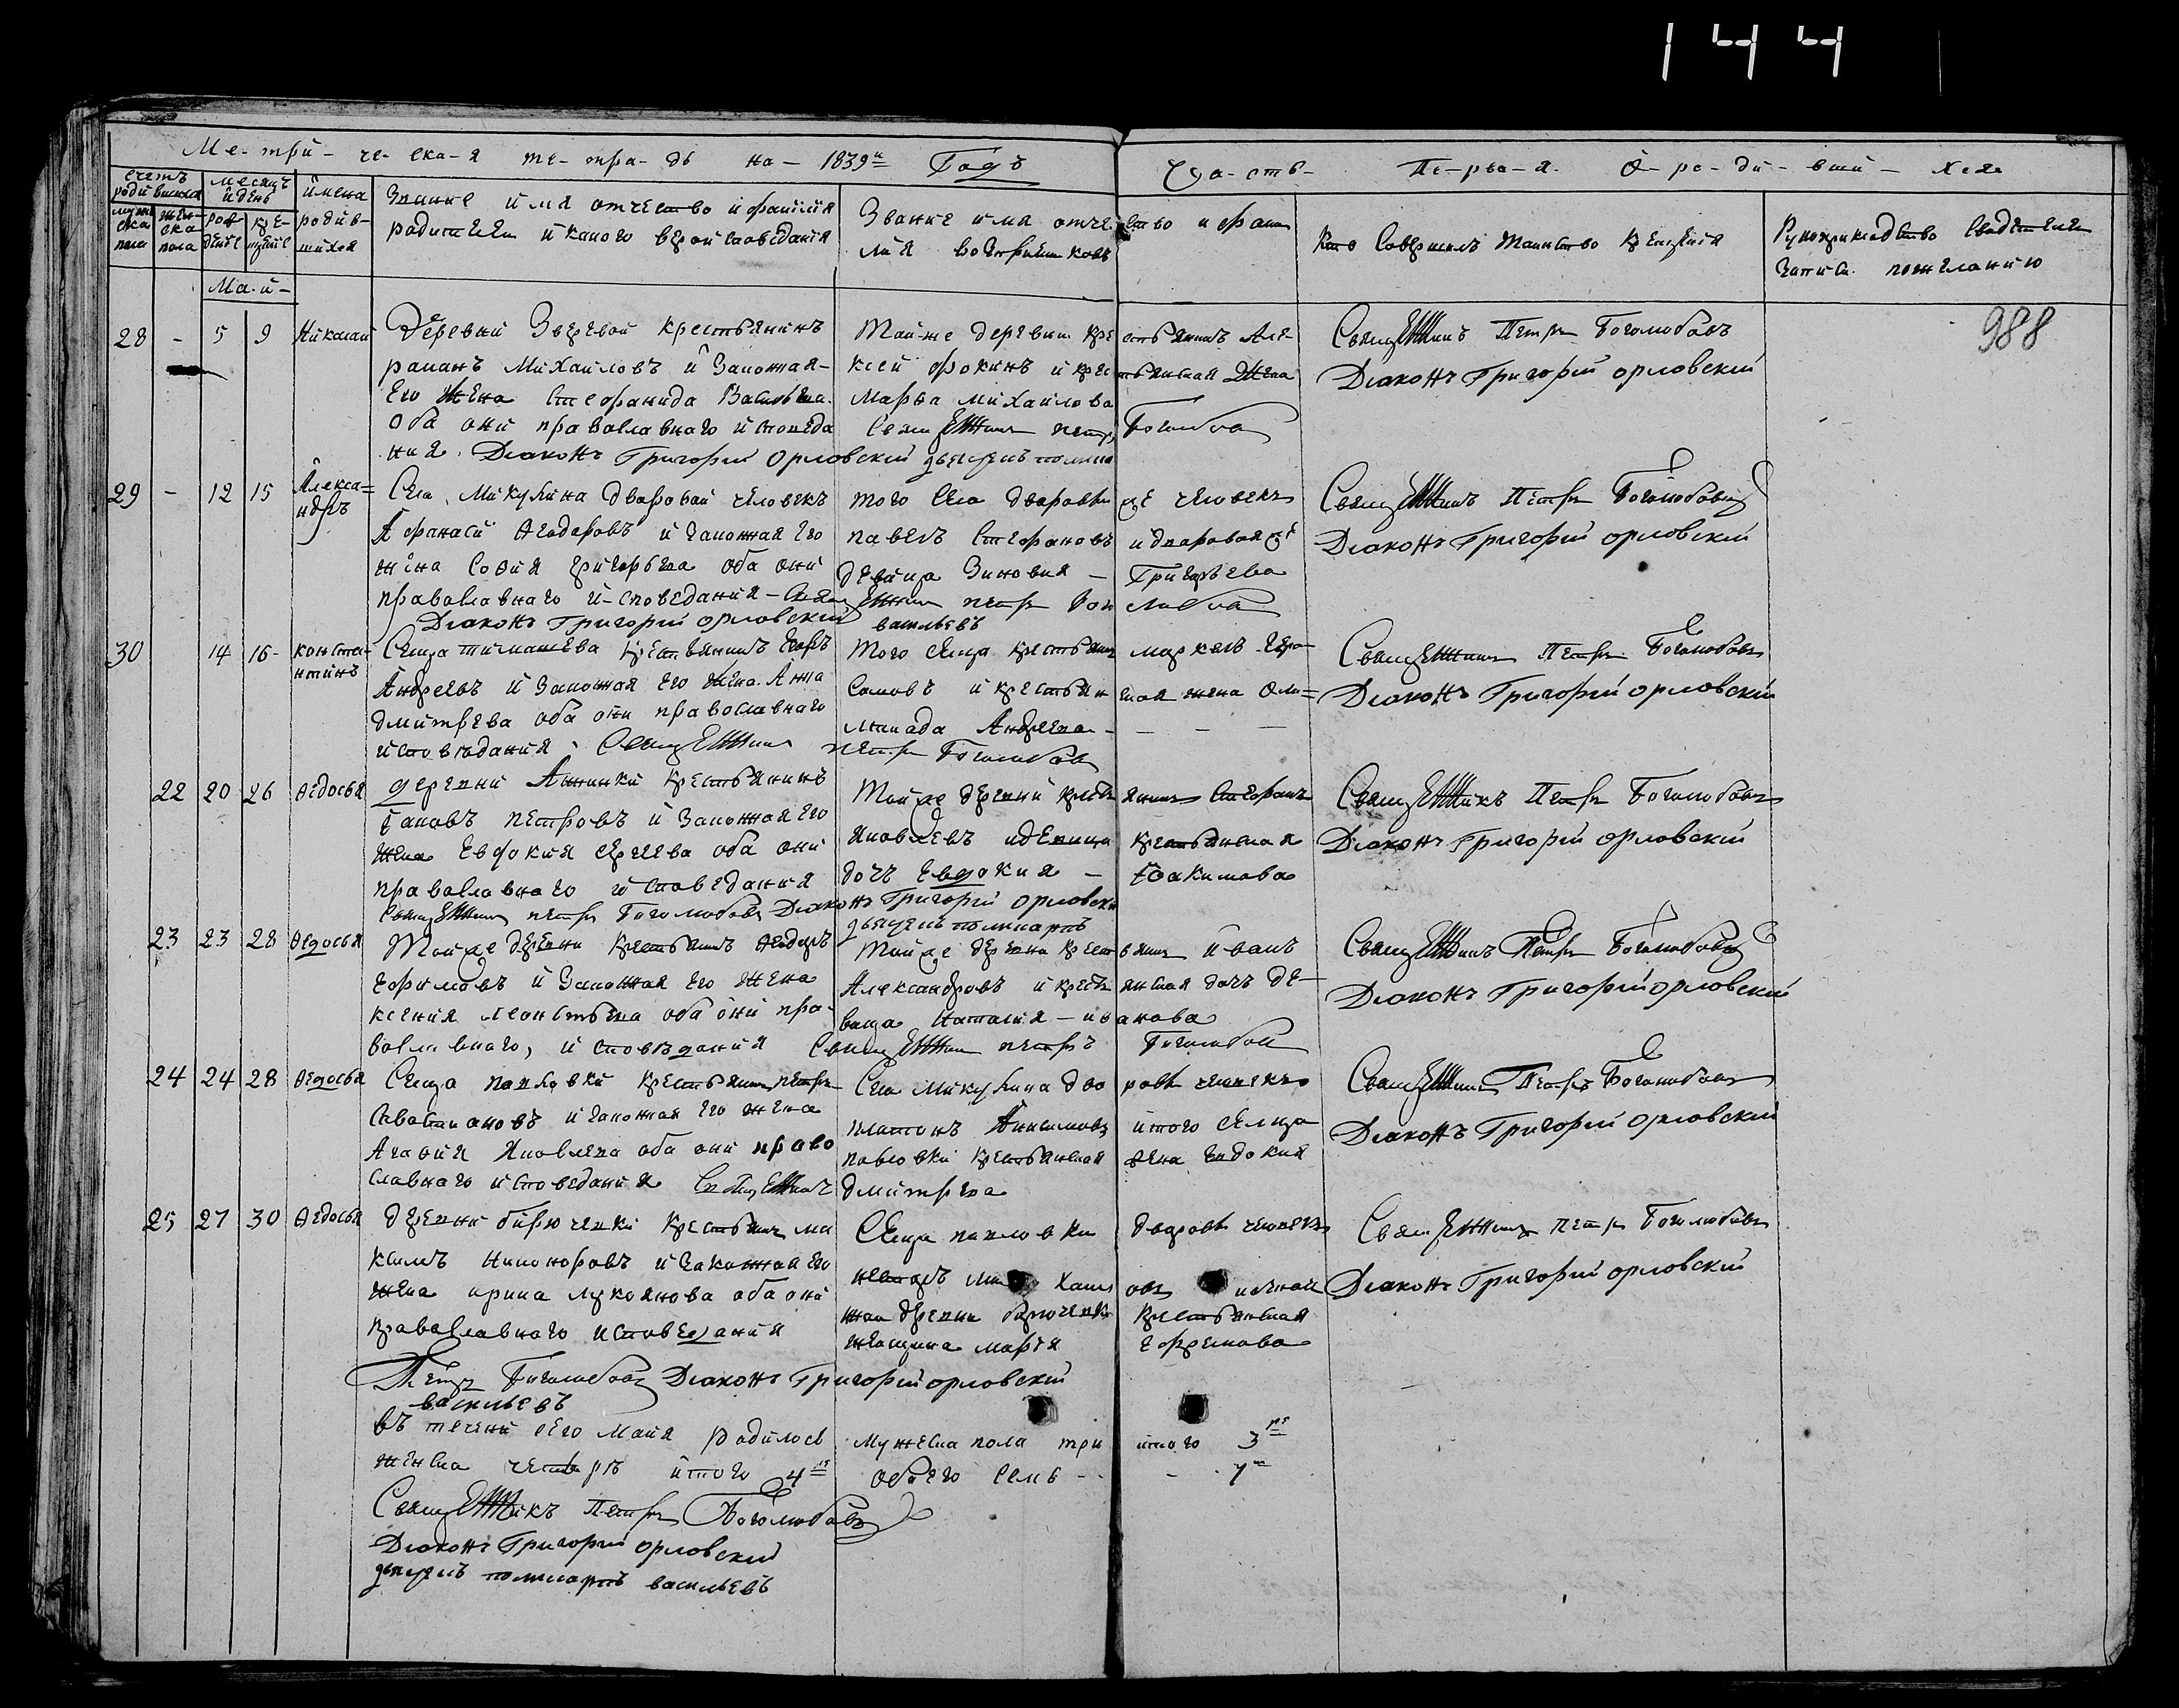 144
Метрическая тетрадь на 1839й Годъ Часть Первая О родившихся
счетъ родившихся
месяцъ и день
имена родившихся
Звание имя отчество и фамилия родителей и какого вероисповедания
Звание имя отчество и фами
лия восприемниковъ
Кто Совершилъ таинство крещения
Рукоприкладство Свидетелей
записи по желанию
мужеска пола
женска пола
рождение
крещение
Май
988
28 - 5 9 Николай
Деревни Зверевой крестьянинъ
романъ Михайловъ и Законная
Его Жена Стефанида Васильева
оба они православнаго исповеда
ния Диаконъ Григорий Орловский
Тойже деревни крестьянинъ Але
ксей фокинъ и крестьянская Жена
марья михайлова
Священникъ петръ Боголюбовъ
Священникъ Петръ Боголюбовъ
Диаконъ Григорий орловский
29 - 12 15 Александръ
Села Микулина дворовой человекъ
Афанасий Феодоровъ и законная Его
жена София григорьева оба они
православнаго исповедания Священникъ петръ Боголюбовъ
Диаконъ Григорий орловский
васильевъ
того Села дворовые человекъ
павелъ Стефановъ и дворовая
девица Зиновия - Григорьева
Священникъ Петръ Боголюбовъ
Диаконъ Григорий орловский
30 14 16 константинъ
Сельца тимашева крестьянинъ
Андреевъ и Законная его жена Анна
дмитрева оба они православнаго
исповедания Священникъ петръ Боголюбовъ
Того сельца крестьянинъ маркелъ Гера
симовъ и крестьянская жена
Андреева
Священникъ Петръ Боголюбовъ
Диаконъ Григорий орловский
22 20 26 Федосья
деревни крестьянинъ
петровъ и Законная его
жена Евдокия сергеева оба они
православнаго исповедания
Священникъ петръ Боголюбовъ Диаконъ Григорий орловский
Тойже деревни крестьянинъ Стефанъ
яковлевъ и девица крестьянская
дочь Евдокия - Иоакимова
Священникъ Петръ Боголюбовъ
Диаконъ Григорий орловский
23 23 28 Федосья
Тойже деревни крестьянинъ Феодоръ
Ефимовъ и Законная его жена
ксения леонтьева оба они пра
вославнаго, исповедания Священникъ петръ Боголюбовъ
Тойже деревни крестьянинъ иванъ
Александровъ и крестьянская дочь де
вица Наталия - иванова
Священникъ Петръ Боголюбовъ
Диаконъ Григорий орловский
24 24 28 Федосья
Сельца павловки крестьянинъ петръ
Савостиановъ и законная Его жена
Агафия Яковлева оба они право
славнаго исповедания Священникъ
Села Микулина дворовы человекъ
платонъ Анисимовъ и того сельца
павловки крестьянская жена Евдокия
дмитрева
Священникъ Петръ Боголюбовъ
Диаконъ Григорий орловский
25 27 30 Федосья
деревни бирючевки крестьянинъ ма
ксимъ Никоноровъ и законная его
жена ирина лукоянова оба они
православнаго исповедания
Петръ Боголюбовъ Диаконъ Григорий орловский
васильевъ
Сельца павловки дворовы человекъ
деревни бирючевки крестьянская
женщина марья Ефремова
Священникъ петръ Боголюбовъ
Диаконъ Григорий орловский
въ течени сего Маия родилось мужеска пола три итого 3
женска четыре итого 4 обоего семь - 7
Священникъ Петръ Боголюбовъ
Диаконъ Григорий орловский
васильевъ